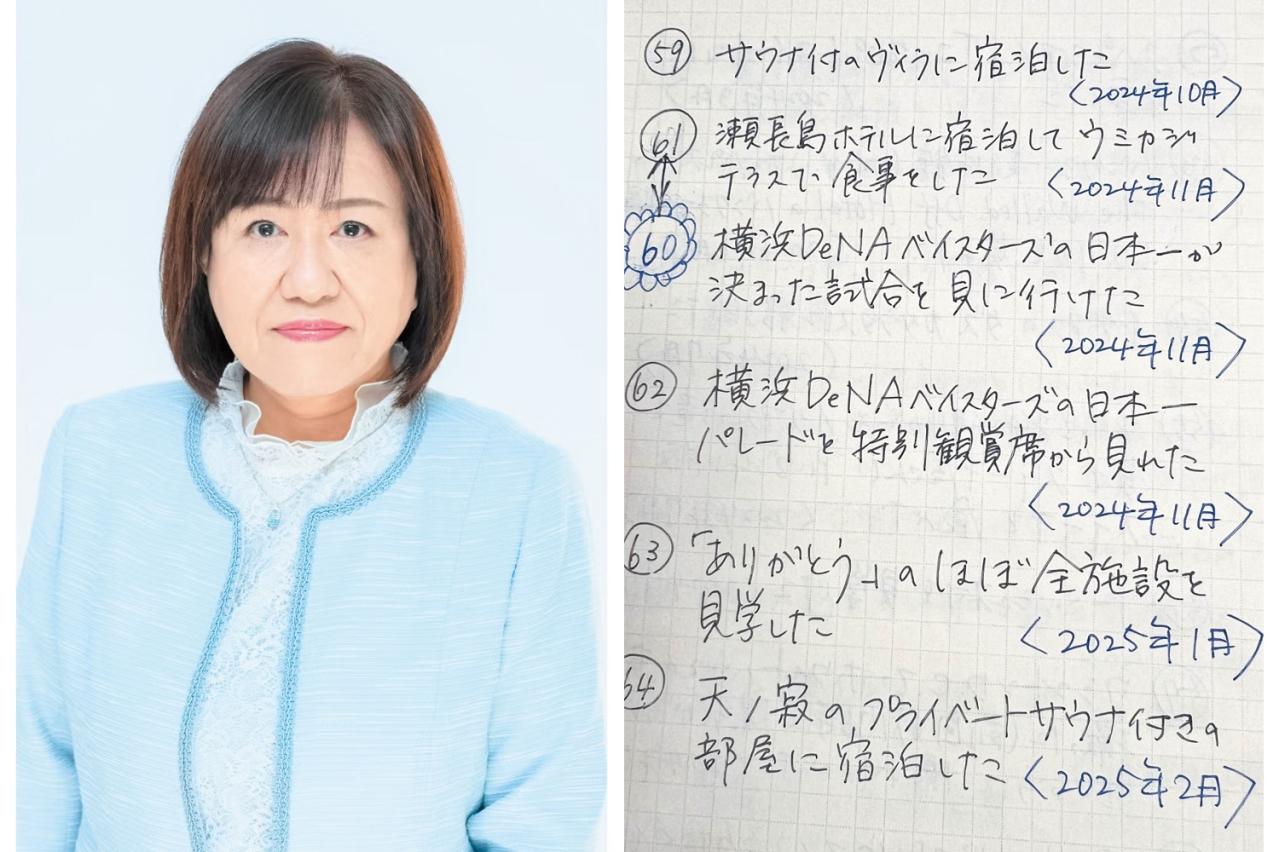 59 サウナ付のヴィラに宿泊した
〈2024年10月〉
61 瀬長島ホテルに宿泊してウミカジ
テラスで食事をした 〈2024年11月〉
60 横浜DeNAベイスターズの日本一が
決まった試合を見に行けた
〈2024年11月〉
62 横浜DeNAベイスターズの日本一
パレードを特別観賞席から見れた
〈2024年11月〉
63 「ありがとう」のほぼ全施設を
見学した 〈2025年1月〉
64 天ノ寂のプライベートサウナ付きの
部屋に宿泊した 〈2025年2月〉